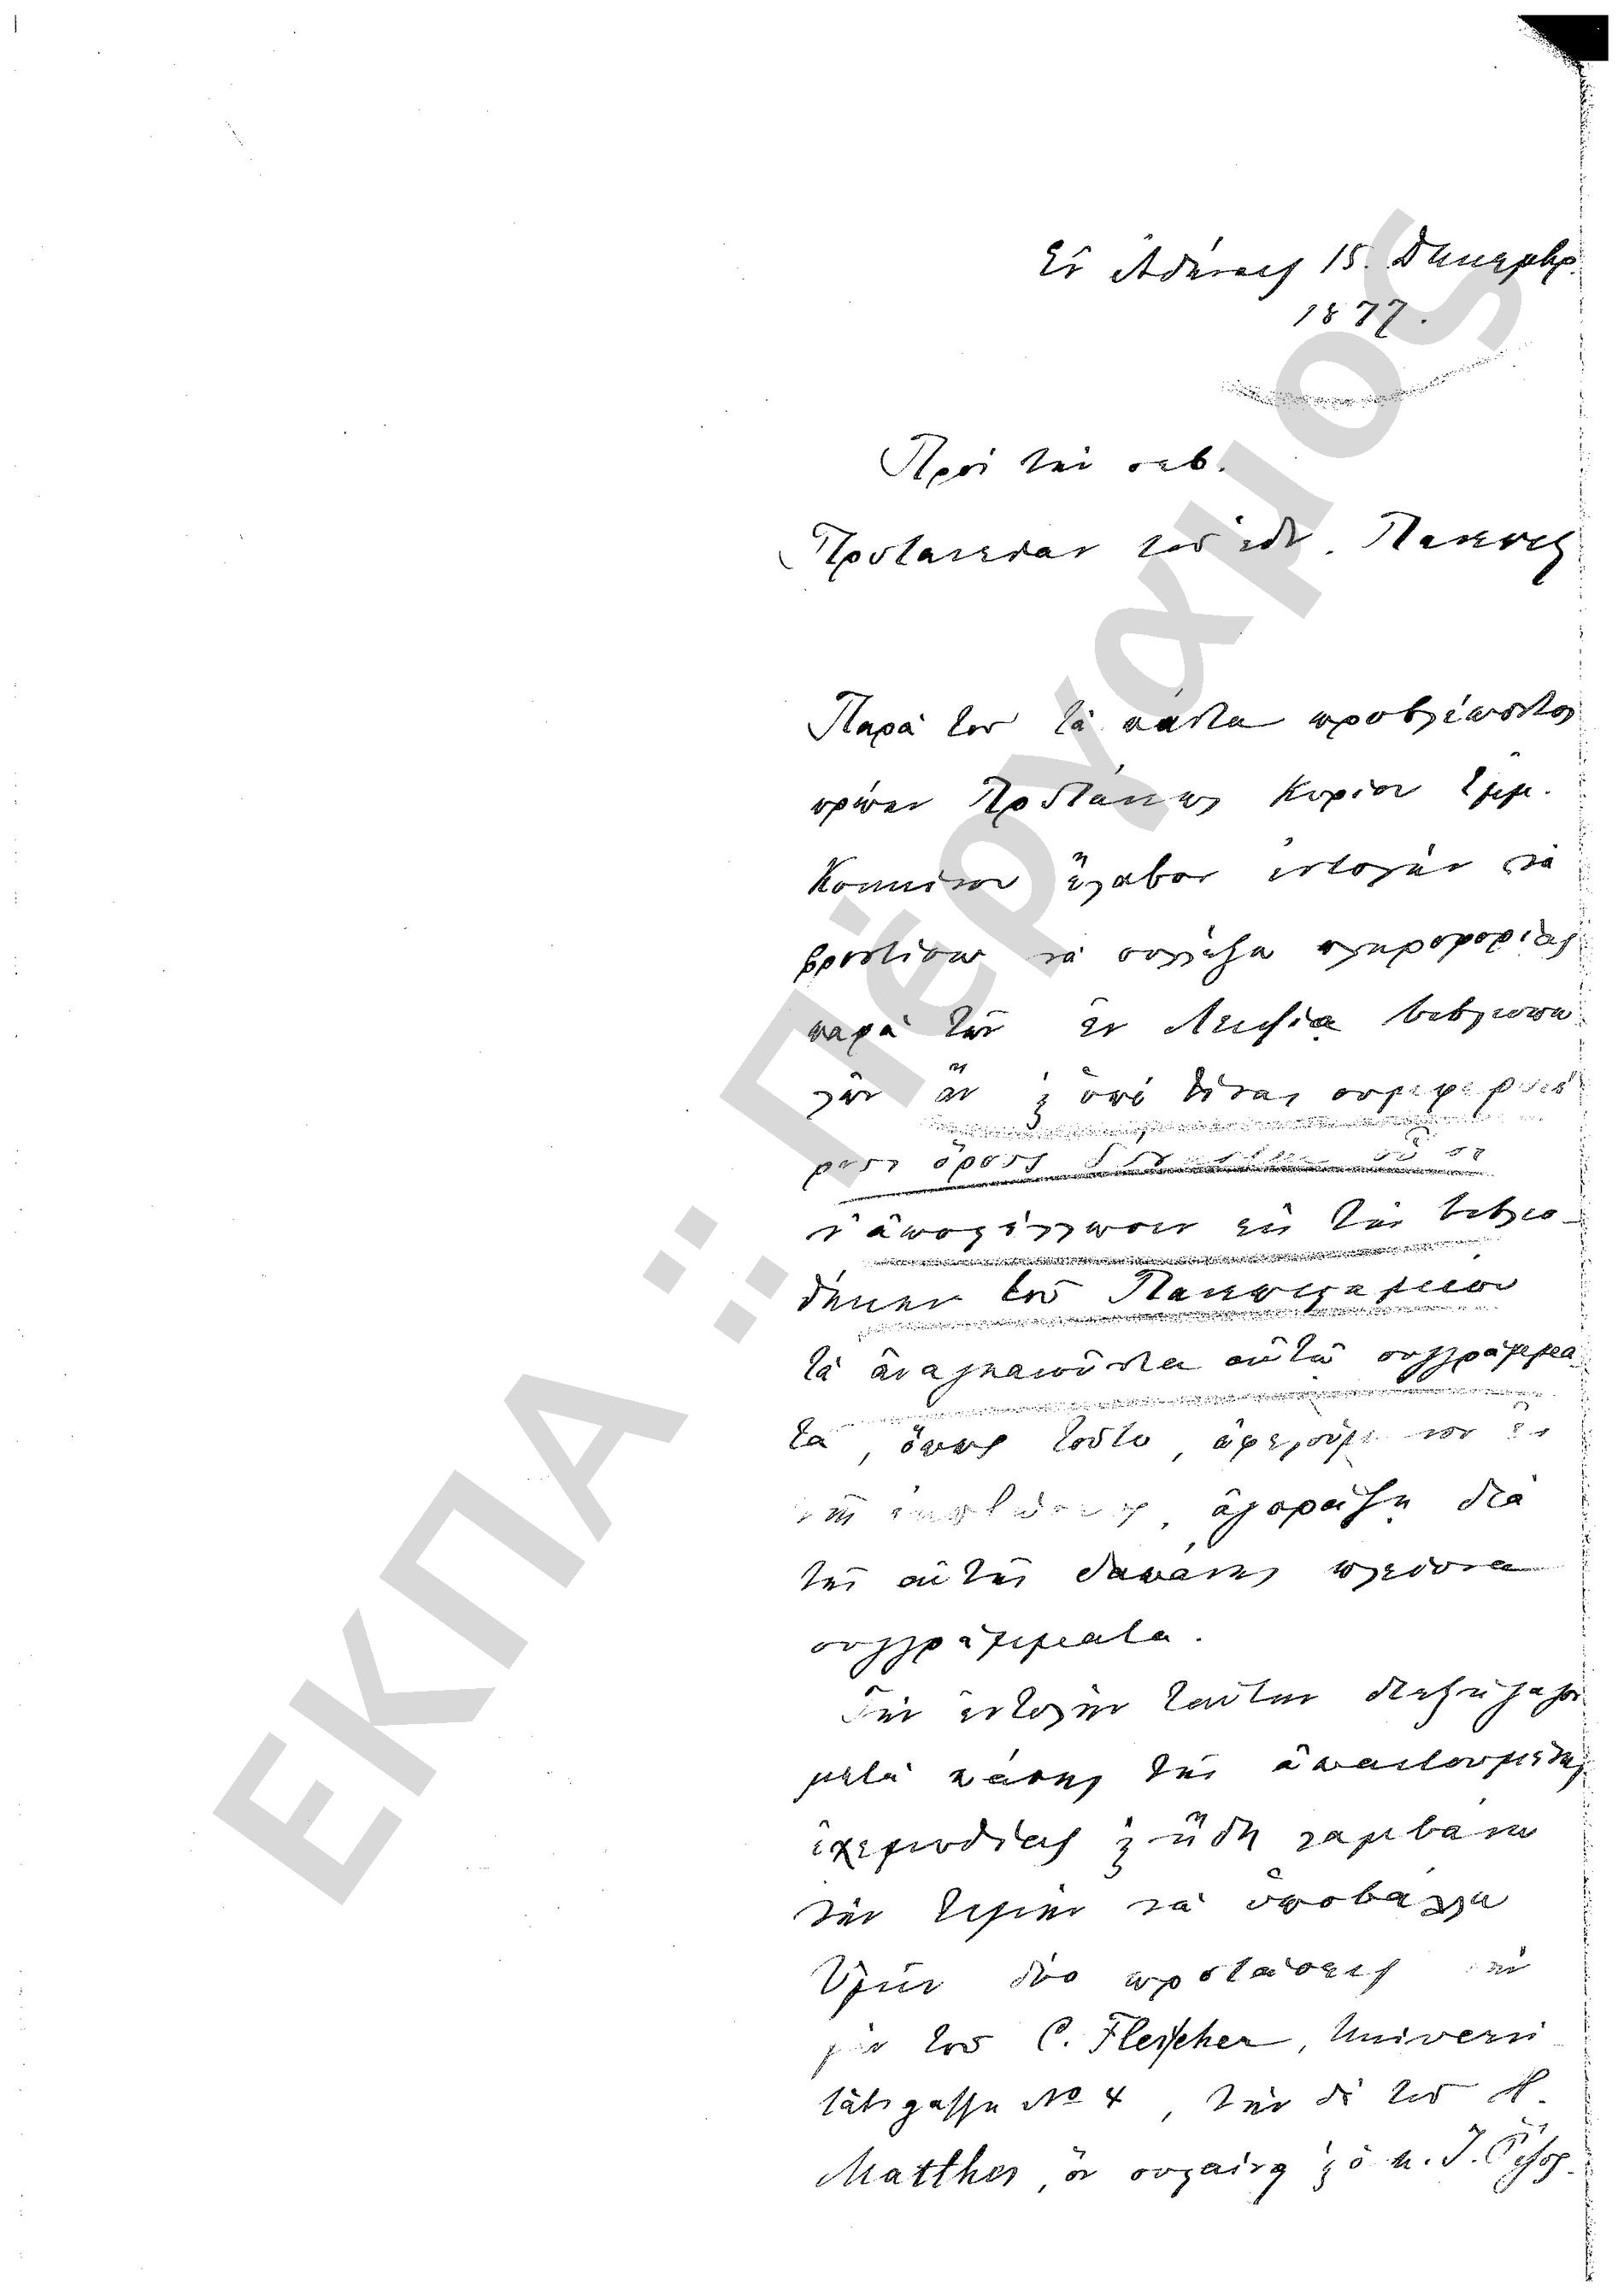 Ἐν Ἀθήναις 15. Δεκεμβρ.
1877.
Πρὸς τὴν σεβ.
Πρυτανείαν τοῦ ἐθν. Πανεπις
Παρὰ τοῦ τὰ πάντα προβλέποντος
πρώην Πρυτάνεως Κυρίου Ἐμμ.
Κοκκίνου ἔλαβον ἐντολὴν νὰ
φροντίσω νὰ συλλέξω πληροφορίας
παρὰ τῶν ἐν Λειψίᾳ βιβλιοπω
λῶν ἂν ὑπὸ
ρους ὅρους
ν' ἀποστέλλωσιν εἰς τὴν βιβλιο
θήκην τοῦ Πανεπιστημίου
τὰ ἀναγκαιοῦντα αὐτῷ συγγράμμα
τα, ὅπως τοῦτο, ὠφελούμενον ἐκ
τῆς ἐκπτώσεως, ἀγοράζῃ διὰ
τῆς αὐτῆς δαπάνης πλείονα
συγγράμματα.
Τὴν ἐντολὴν ταύτην διεξήγαγον
μετὰ πάσης τῆς ἀπαιτουμένης
ἐχεμυθίας καὶ ἤδη λαμβάνω
τὴν τιμὴν νὰ ὑποβάλλω
Ὑμῖν δύο προτάσεις τὴν
μὲν τοῦ C. Fleischer, Universi
tätsgasse No 4, τὴν δὲ τοῦ H.
Matthes, ὃν συγαινᾳ καὶ ὁ κ. Ι.